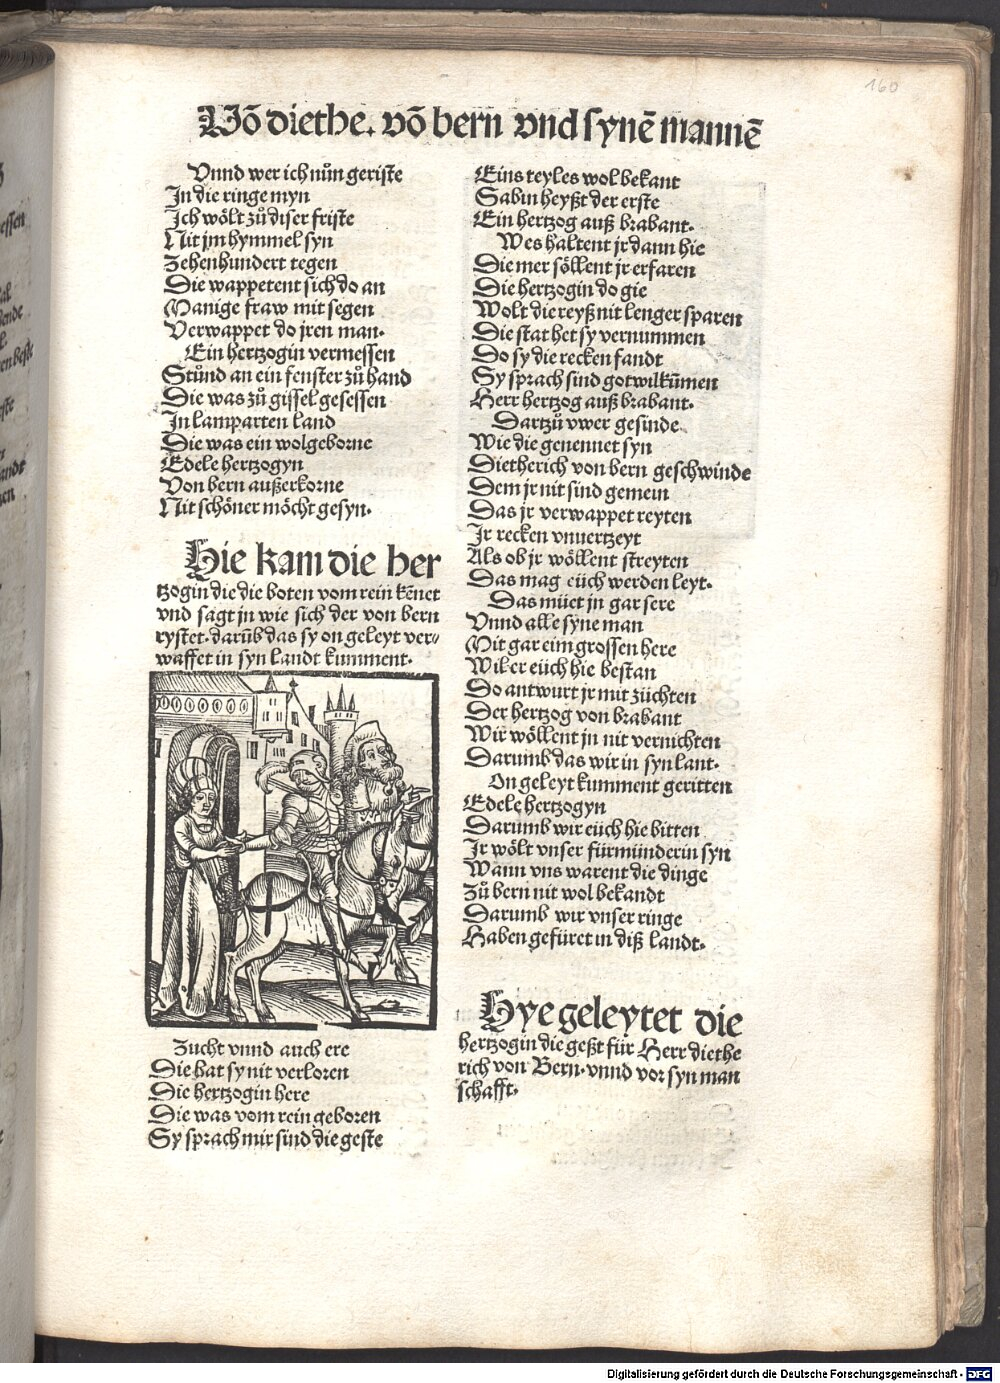 160
Võ diethe. võ bern vnd synẽ mannẽ
Vnnd wer ich nůn geriste
In die ringe myn
Ich wölt zů diser friste
Nit jm hymmel syn
Zehenhundert tegen
Die wappetent sich do an
Manige fraw mit segen
Verwappet do jren man.
Ein hertzogin vermessen
Stůnd an ein fenster zů hand
Die was zů gissel gesessen
In lamparten land
Die was ein wolgeborne
Edele hertzogyn
Von bern außerkorne
Nit schöner möcht gesyn.
Hie kam die her
tzogin die die boten vom rein kẽnet
vnd sagt jn wie sich der von bern
rystet. darũb das sy on geleyt ver⸗
waffet in syn landt kumment.
Zucht vnnd auch ere
Die hat sy nit verloren
Die hertzogin here
Die was vom rein geboren
Sy sprach mir sind die geste
Eins teyles wol bekant
Sabin heyßt der erste
Ein hertzog auß brabant.
Wes haltent jr dann hie
Die mer söllent jr erfaren
Die hertzogin do gie
Wolt die reyß nit lenger sparen
Die stat het sy vernummen
Do sy die recken fandt
Sy sprach sind gotwilkũmen
Herr hertzog auß brabant.
Dartzů vwer gesinde
Wie die genennet syn
Dietherich von bern geschwinde
Dem jr nit sind gemein
Das jr verwappet reyten
Ir recken vnuertzeyt
Als ob jr wöllent streyten
Das mag eüch werden leyt.
Das müet jn gar sere
Vnnd alle syne man
Mit gar eim grossen here
Wil er eüch hie bestan
Do antwurt jr mit züchten
Der hertzog von brabant
Wir wöllent jn nit vernichten
Darumb das wir in syn lant.
On geleyt kumment geritten
Edele hertzogyn
Darumb wir eüch hie bitten
Ir wölt vnser fürmünderin syn
Wann vns warent die dinge
Zů bern nit wol bekandt
Darumb wir vnser ringe
Haben gefüret in diß landt.
Hye geleytet die
hertzogin die geßt für Herr diethe
rich von Bern. vnnd vor syn man
schafft.
Digitalisierung gefördert durch die Deutsche Forschungsgemeinschaft - DFG